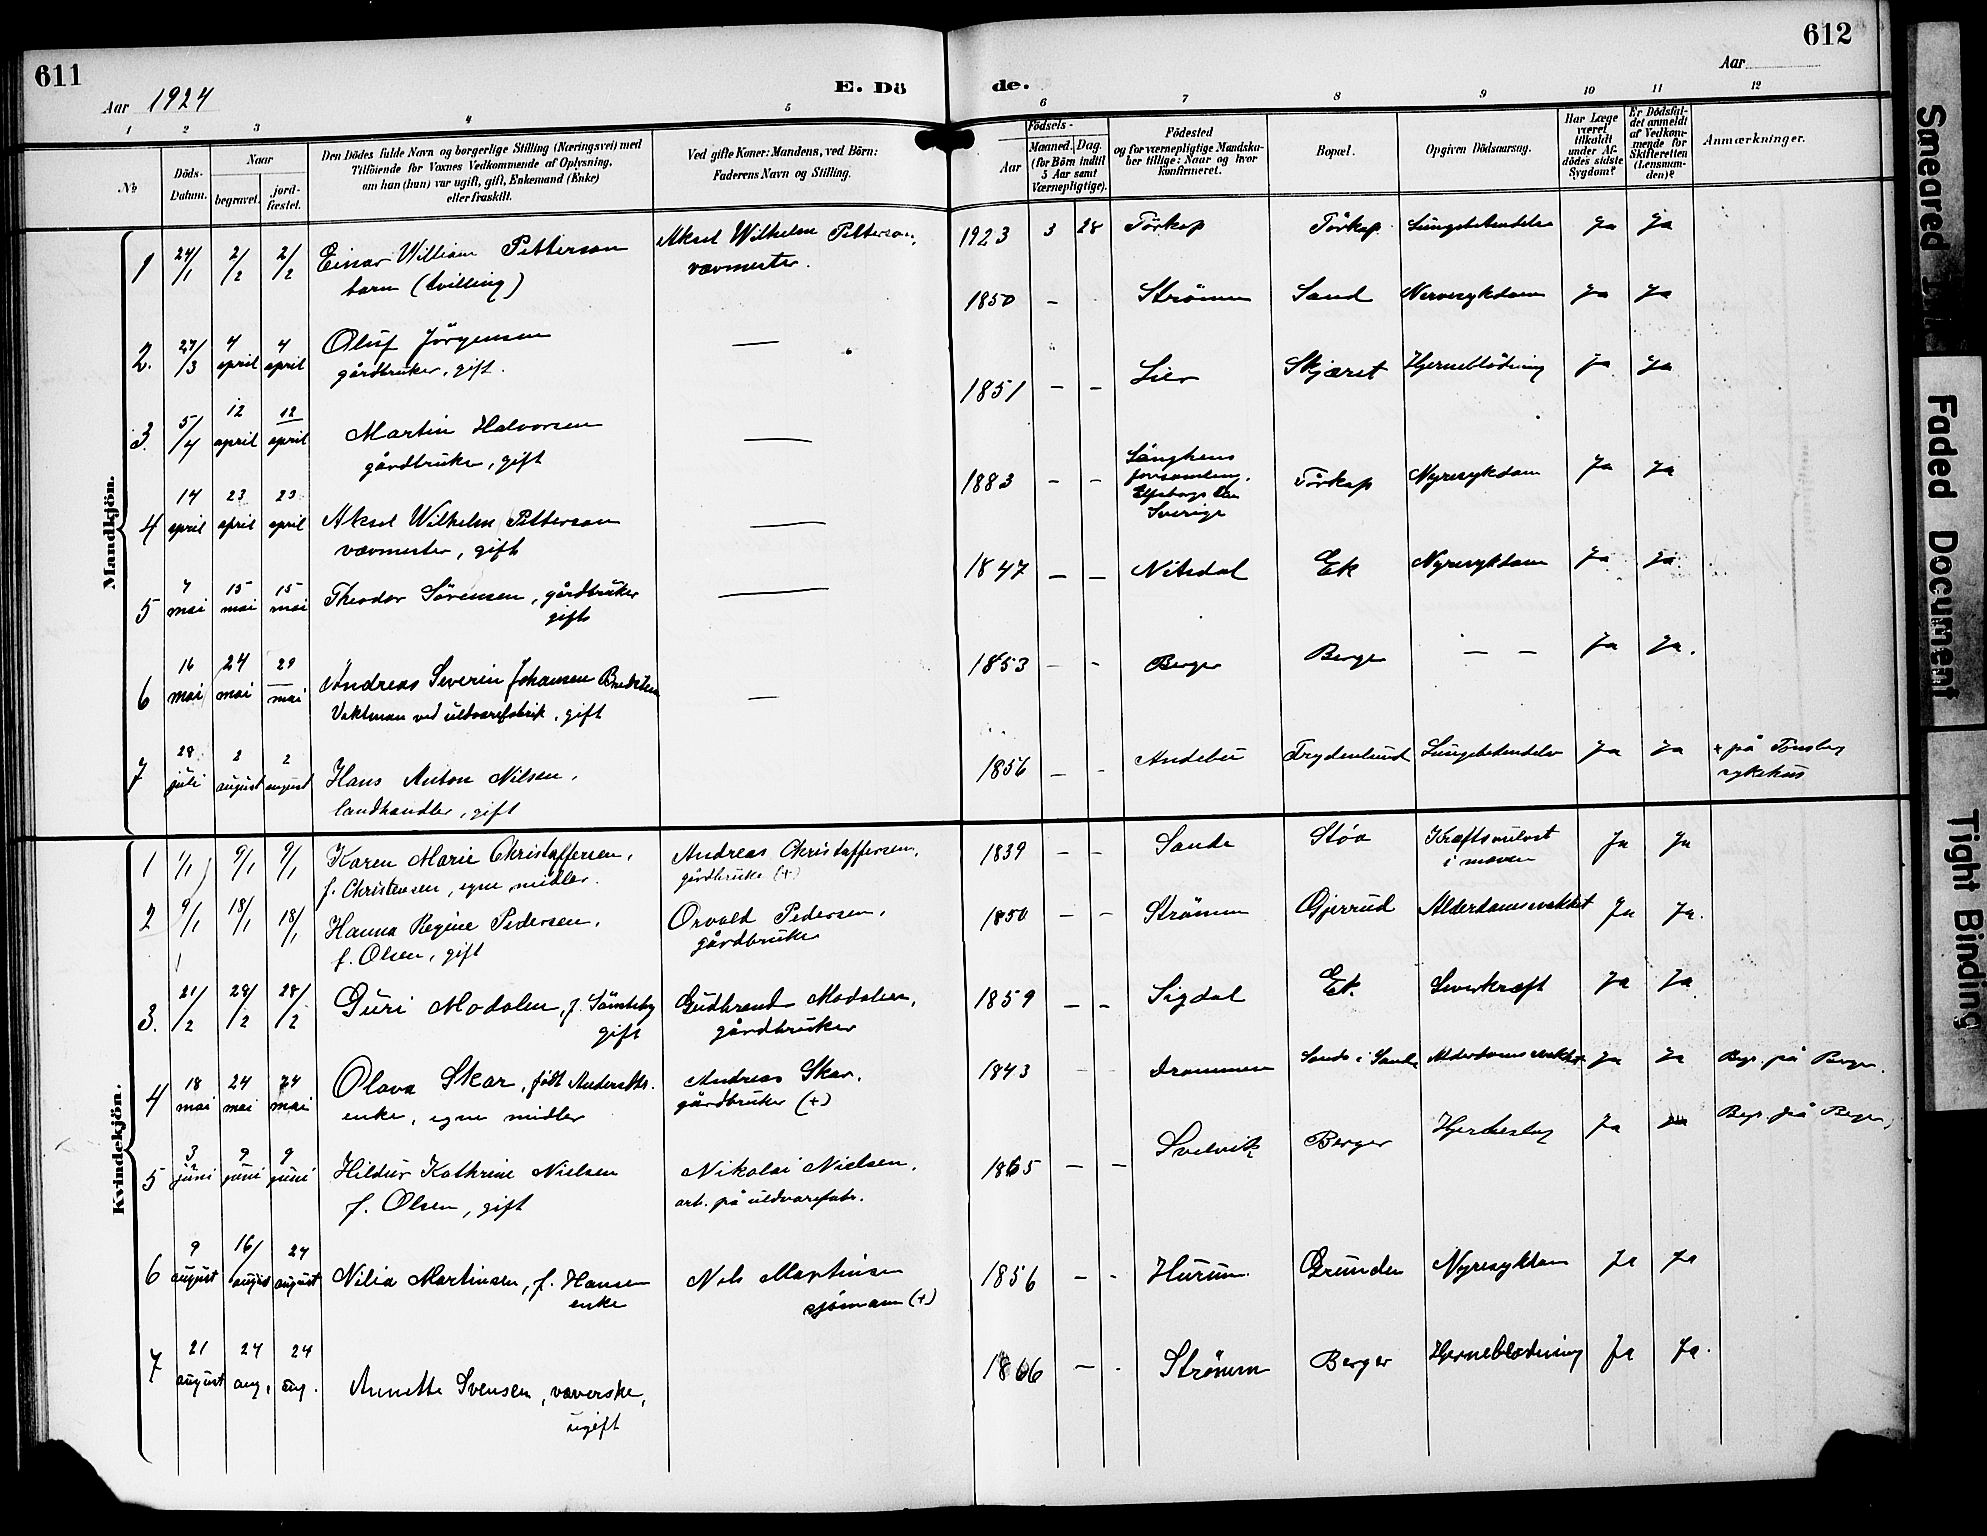 611
612
Aar 1924
E. Dö
de.
Aar
1 2 3 4 5 6 7 8 9 10 11 12
No
Döds-Datum.
Naar
begravet.
jord-fæstet.
Den Dödes fulde Navn og borgerlige Stilling (Næringsvei) med
Tilföiende for Voxnes Vedkommende af Oplysning,
om han (hun) var ugift, gift, Enkemand (Enke)
eller fraskilt.
Ved gifte Koner: Mandens, ved Börn:
Faderens Navn og Stilling.
Födsels-
Aar
Maaned. Dag.
(for Börn indtil
5 Aar samt
Værnepligtige).
Födested
og for værnepligtige Mandska-
ber tillige: Naar og hvor
konfirmeret.
Bopæl.
Opgiven Dödsaarsag.
Har Læge
været
tilkaldt
under Af-
dödes sidste
Sygdom?
Er Dödsfal-
det anmeldt
af Vedkom-
mende for
Skifteretten
(Lensman-
den)?
Anmærkninger.
Mandkjön.
1 24/1 2/2 2/2 Einar William Petterson Aksel Wilhelm Petterson, 1923 3 28 Törkop Törkop Lungebetendelse Ja Ja
barn (tvilling) vævmester.
2. 27/3 4 april 4 april Oluf Jörgensen — 1850 - Strömm Sand Nervesykdom Ja Ja
gårdbruker, gift.
3. 5/4 12 april 12 april Martin Halvorsen — 1851 - - Lier Skjæret Hjerneblödning Ja Ja
gårdbruker, gift
4 14 april 23 april 23 april Aksel Wilhelm Petterson — 1883 - - forsamling, Törkop Nyresykdom Ja Ja
vævmester, gift Sverige
5 7 mai 15 mai 15 mai Theodor Sörensen, gårdbruker — 1847 - - Nitedal Ek Nyresykdom Ja Ja
gift
6 16 mai 24 mai 29 mai Andreas Severin Johansen — 1853 - - Berger Berger - - Ja Ja.
Vaktman ved uldvarefabrik, gift
7 28 juli 2 august 2 august Hans Anton Nilsen, 1856 - - Andebu Frydenlund Lungebetendelse Ja Ja + på Tönsberg
landhandler, gift sykehus
Kvindekjön.
1 1/1 9/1 9/1 Karen Marie Christoffersen, Andreas Christoffersen, 1839 - - Sande Støa Kræftsvulst Ja Ja
f. Christensen, egne midler. gårdbruker (+) i maven
2 9/1 18/1 18/1 Hanna Regine Pedersen, Orvald Pedersen, 1850 - - Strömm Gjerrud Alderdomssvakhet Ja Ja.
f. Olsen, gift gårdbruker
3. 21/2 28/2 28/2 Guri Modalen, f. Gudbrand Modalen, 1859 - - Sigdal Ek. Leverkræft Ja Ja
gift gårdbruker
4 18 mai 24 mai 24 mai Olava Skar, født Andersdtr. Andreas Skar, 1843 - - Drammen Sands i Sande Alderdomssvakhet Ja Ja Begr. på Berger.
enke, egne midler gårdbruker (+)
5 3 juni 9 juni 9 juni Hildur Kathrine Nielsen Nikolai Nielsen, 1865 - - Svelvik Berger Hjerteslag Ja Ja Begr. på Berger
f. Olsen, gift arb. på uldvarefabr.
6 9 august 16/august 24 august Nilia Martinsen, f. Hansen Nels Martinsen 1856 - - Hurum Grunden Nyresykdom Ja Ja
enke sjömann (+)
7 21 august 24 aug. 24 aug. Annette Svensen, væverske, 1866 - - Strömm Berger Hjerneblødning Ja Ja.
ugift
Smeared
Faded Document
Tight Binding